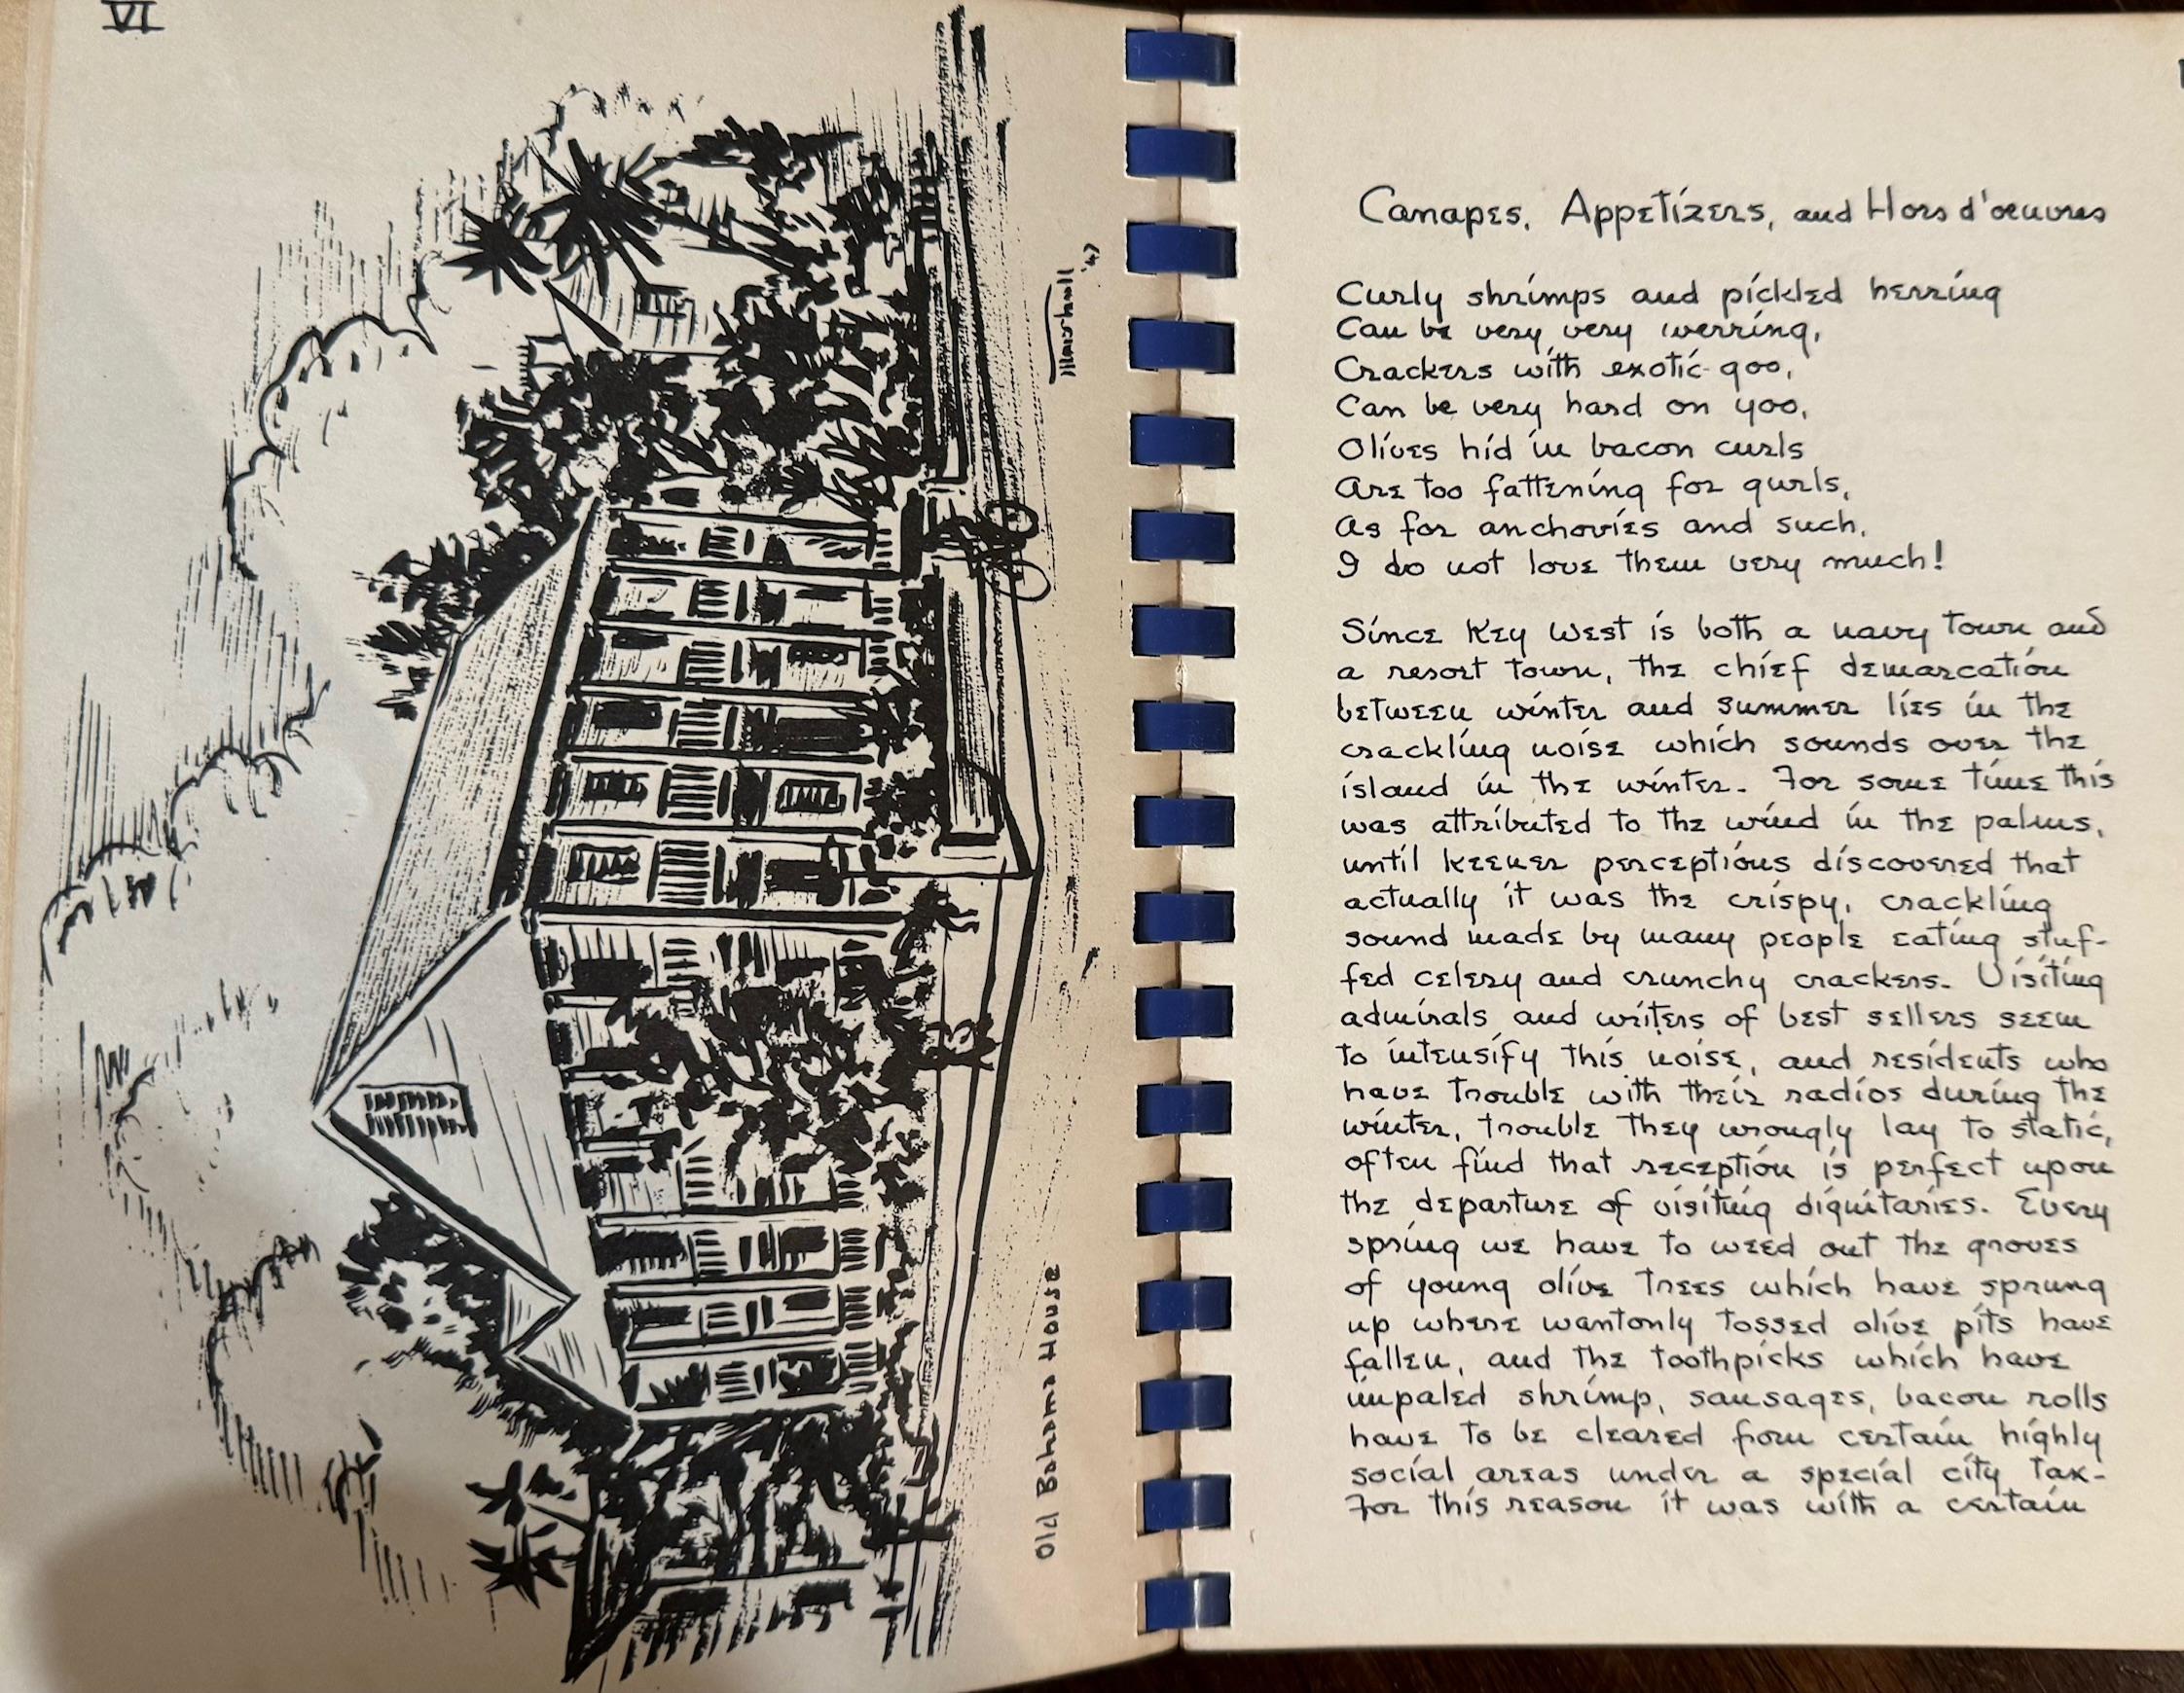 VI
Old Bahama House
Marshall
'47
Canapes, Appetizers, and Hors d'oeuvres
Curly shrimps and pickled herring
Can be very very werring,
Crackers with exotic goo,
Can be very hard on yoo,
Olives hid in bacon curls
Are too fattening for gurls,
As for anchovies and such,
I do not love them very much!
Since Key West is both a navy town and
a resort town, the chief demarcation
between winter and summer lies in the
crackling noise which sounds over the
island in the winter. For some time this
was attributed to the wind in the palms,
until keener perceptions discovered that
actually it was the crispy, crackling
sound made by many people eating stuf-
fed celery and crunchy crackers. Visiting
admirals and writers of best sellers seem
to intensify this noise, and residents who
have trouble with their radios during the
winter, trouble they wrongly lay to static,
often find that reception is perfect upon
the departure of visiting dignitaries. Every
spring we have to weed out the groves
of young olive trees which have sprung
up where wantonly tossed olive pits have
fallen, and the toothpicks which have
impaled shrimp, sausages, bacon rolls
have to be cleared from certain highly
social areas under a special city tax-
For this reason it was with a certain